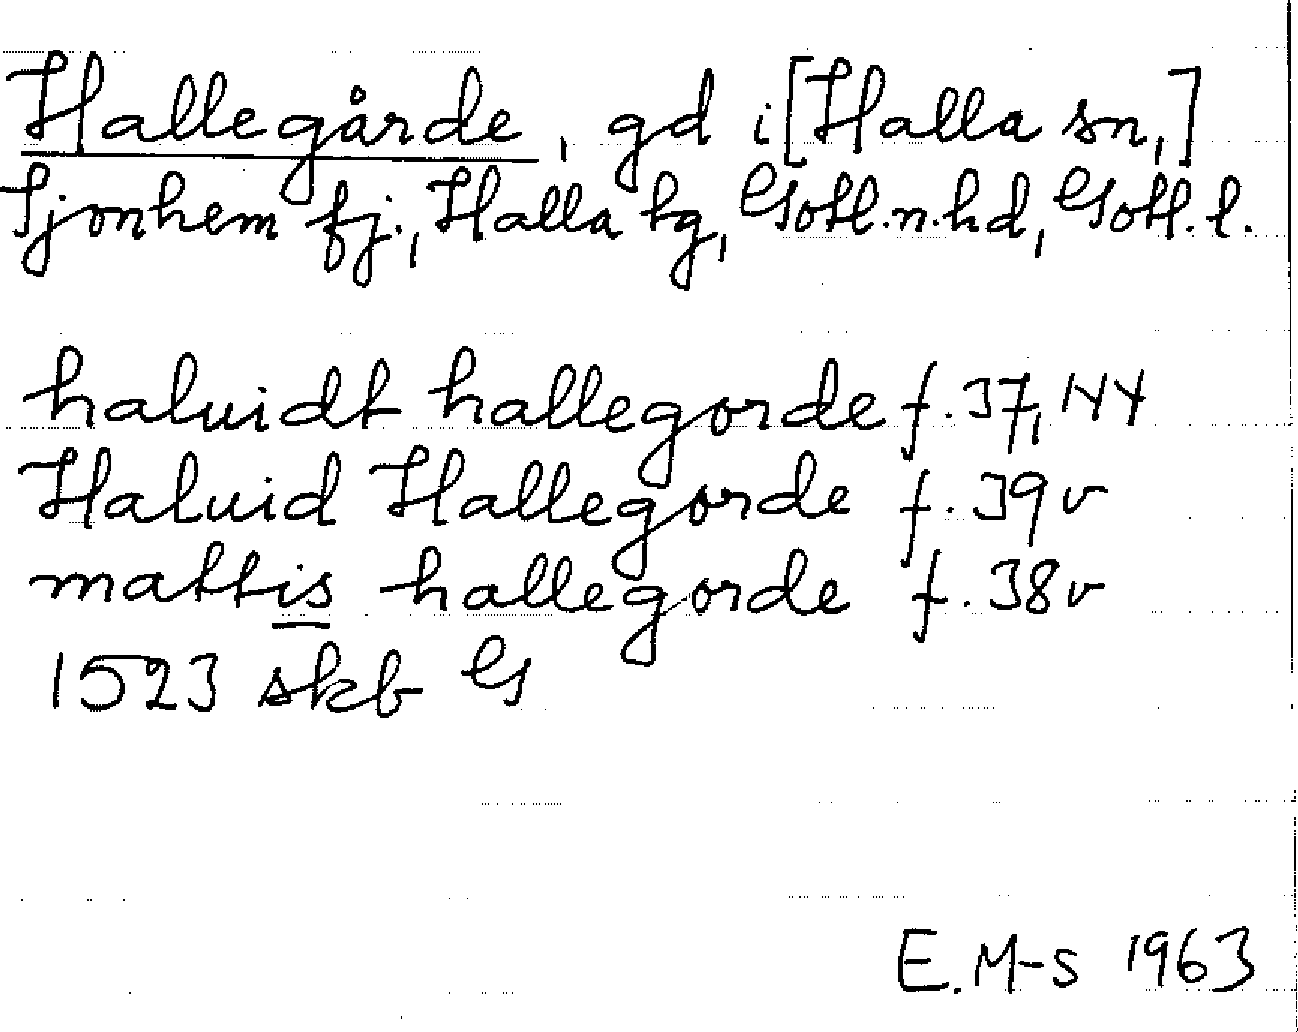 Hallegårde, gd i [Halla sn,]
Sjonhem fj., Halla tg, Gotl.n.hd, Gotl.l.
haluidt hallegorde f. 37, 144
Haluid Hallegorde f. 39v
mattis hallegorde f. 38v
1523 skb G
E.M-s 1963